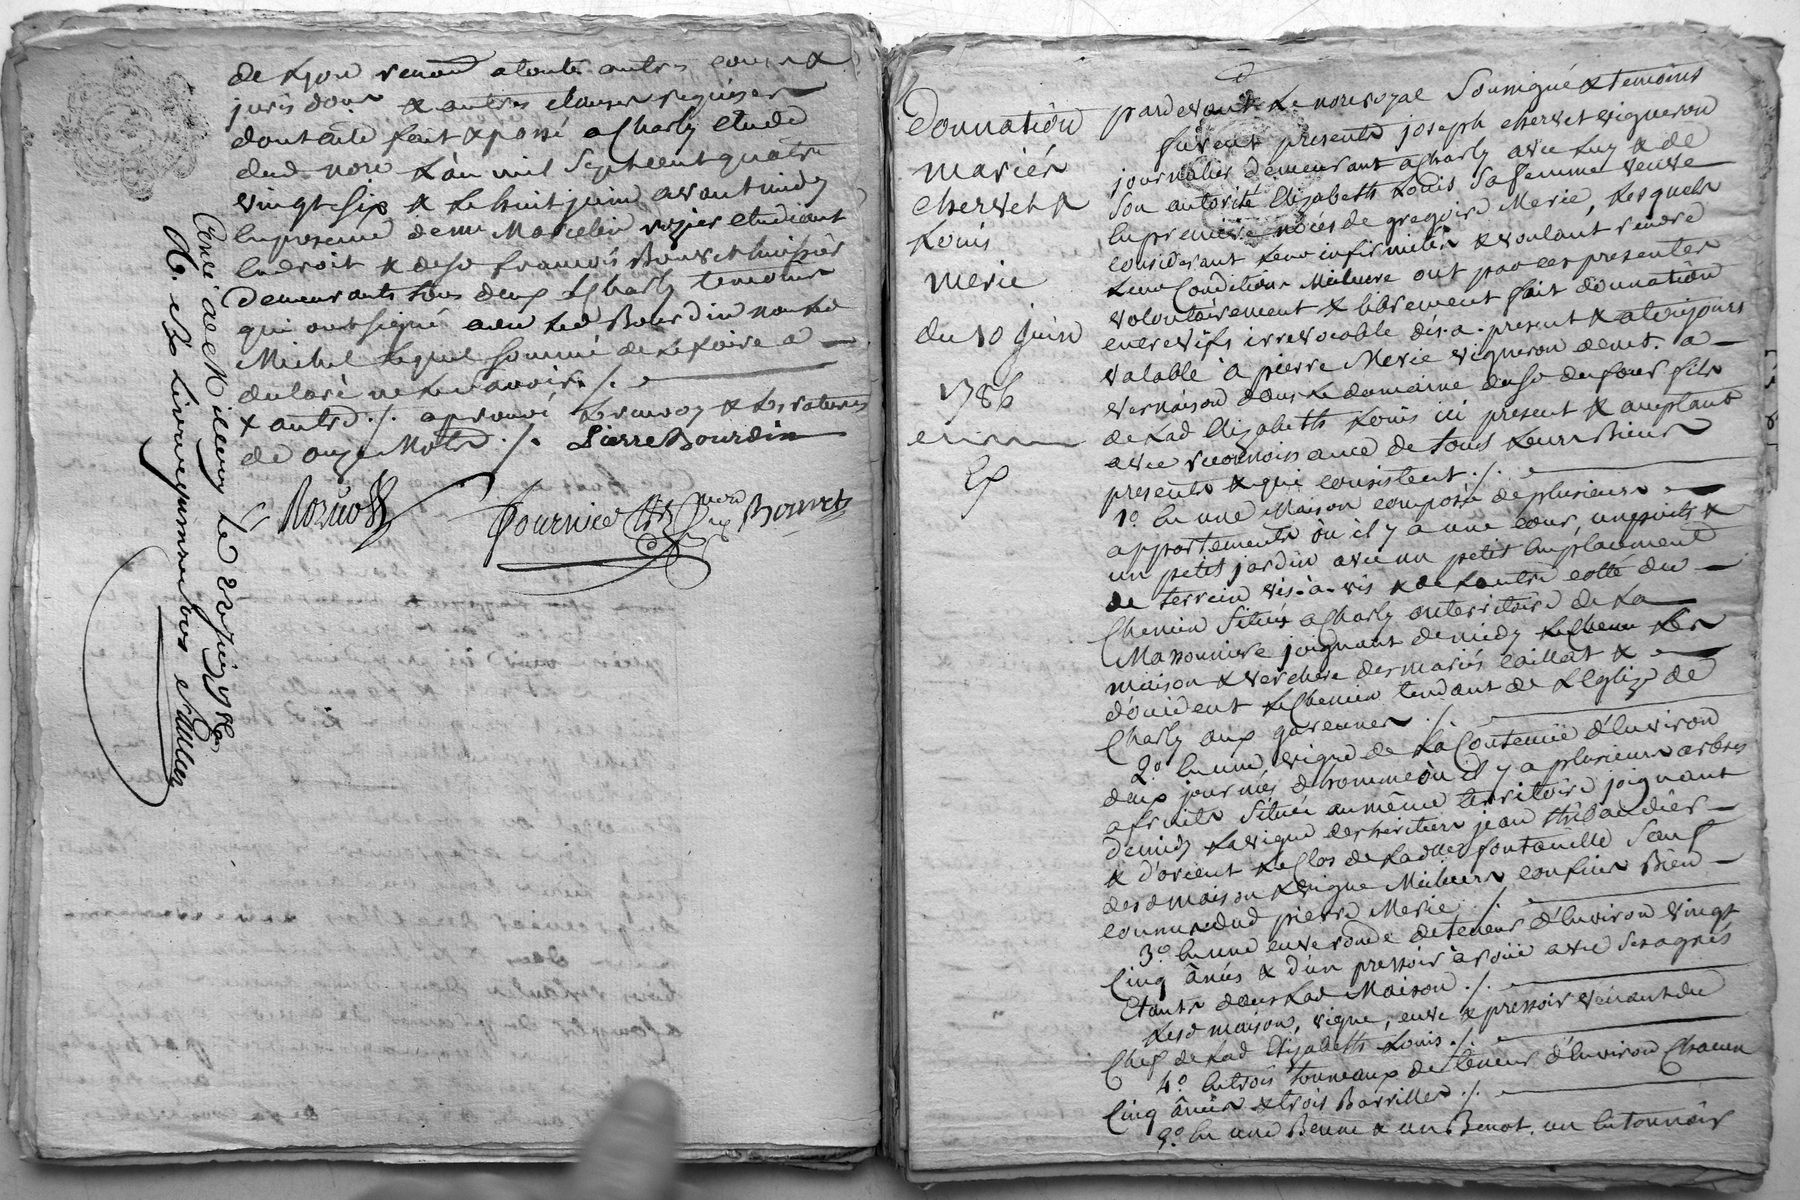 de Lyon renond a toutes autres cours &
jurisdon & autres clauses requises
dont acte fait & passé a Charly etude
dud. nore L'an mil Sept cent quatre
vingt Six & Le huit juin avant midy
En presence de mr Marcelin rozier etudiant
En droit & de Sr françois Bonnet huissier
demeurants tous deux a Charly temoins
qui ont signé avec Led Bourdin non Led
Michel Lequel Sommé de Le faire a
declaré ne Le Savoir ./.
& autrd ./. aprouvé Le renvoy & Les ratures
de onze Mots ./. Pierre Bourdin
Bonnet
Conlé a Millery Le
R. Six Livres
donnation
mariés
Chervet &
Louis
merie
du 10 juin
1786
Exp
pardevant Le nore royal Soussigné & temoins
furent presents joseph chervet vigneron
journalier demeurant a Charly avec Luy & de
Son autorité Elizabeth Louis Sa femme veuve
En premiere nôces de gregoire Merie, Lesquels
considerant Leurs infirmités & voulant rendre
Leur Condition Meilleure ont par ces presentes
volontairement & librement fait donnation
entrevifs irrevocable dés-a-present & a toujours
valable à pierre Merie vigneron demt. a
vernaison dans Le domaine du Sr dufour fils
de Lad Elizabeth Louis ici present & acceptant
avec reconnoissance de tous Leurs Biens
presents & qui consistent ./.
1º. En une Maison composée de plusieurs
appartements où il y a une cour, un puits &
un petit jardin avec un petit Emplacement
de terrein vis-a-vis & de L'autre cotté du
Chemin Située a Charly au territoire de La
Massonniere joignant de midy Les
maison & verchere des mariés caillat &
d'occident Le Chemin tendant de L'Eglize de
Charly aux garennes ./.
2º. En une vigne de La Contenüe d'Environ
deux journées d'homme où il y a plusieurs arbres
a fruits Située au même territoire joignant
de midy La vigne des heritiers jean thibaudier
& d'orient Le Clos de Ladlle fontanille Sauf
desd maison & vigne Meilleurs confins Bien
connus dud pierre Merie ./.
3º. En une cuve ronde de teneur d'Environ vingt
Cinq ânées & d'un pressoir à roüe avec Ses agrés
Etants dans Lad Maison ./.
Lesd maison, vigne, cuve & pressoir venant du
Chef de Lad Elizabeth Louis ./.
4º. En trois tonneaux de teneur d'Environ Chacun
Cinq ânées & trois Barrilles ./.
5º. En une Benne & un Benot, un Entonnoir